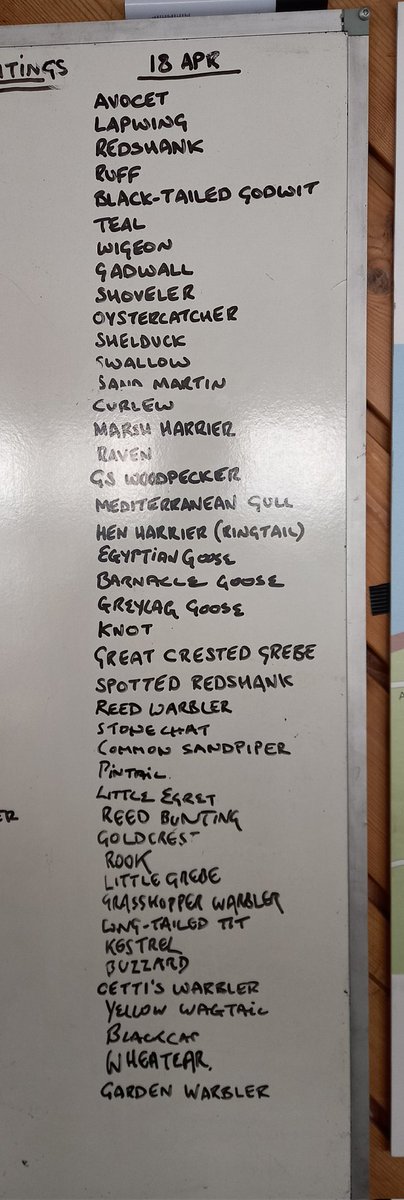 ITINGS
18 APR
AVOCET
LAPWING
REDSHANK
RUFF
BLACK-TAILED GODWIT
TEAL
WIGEON
GADWALL
SHOVELER
OYSTERCATCHER
SHELDUCK
SWALLOW
SAND MARTIN
CURLEW
MARSH HARRIER
RAVEN
GS WOODPECKER
MEDITERRANEAN GULL
HEN HARRIER (RINGTAIL)
EGYPTIAN GOOSE
BARNACLE GOOSE
GREYLAG GOOSE
KNOT
GREAT CRESTED GREBE
SPOTTED REDSHANK
REED WARBLER
STONECHAT
COMMON SANDPIPER
PINTAIL
LITTLE EGRET
ER
REED BUNTING
GOLDCREST
ROOK
LITTLE GREBE
GRASSHOPPER WARBLER
LONG-TAILED TIT
KESTREL
BUZZARD
CETTI'S WARBLER
YELLOW WAGTAIL
BLACKCAP
WHEATEAR.
GARDEN WARBLER